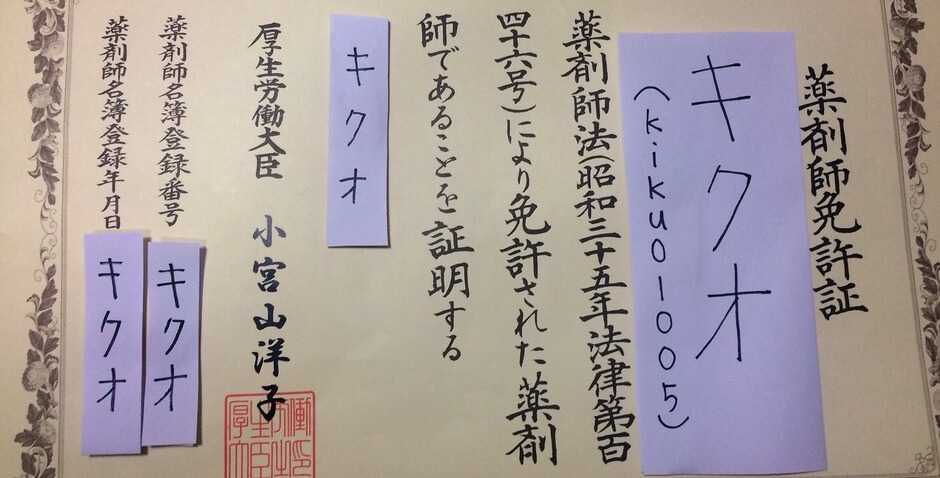 薬剤師免許証
キクオ
(kikuo1005)
薬剤師法(昭和三十五年法律第百
四十六号)により免許された薬剤
師であることを証明する
キクオ
厚生労働大臣 小宮山洋子
薬剤師名簿登録番号 キクオ
薬剤師名簿登録年月日 キクオ